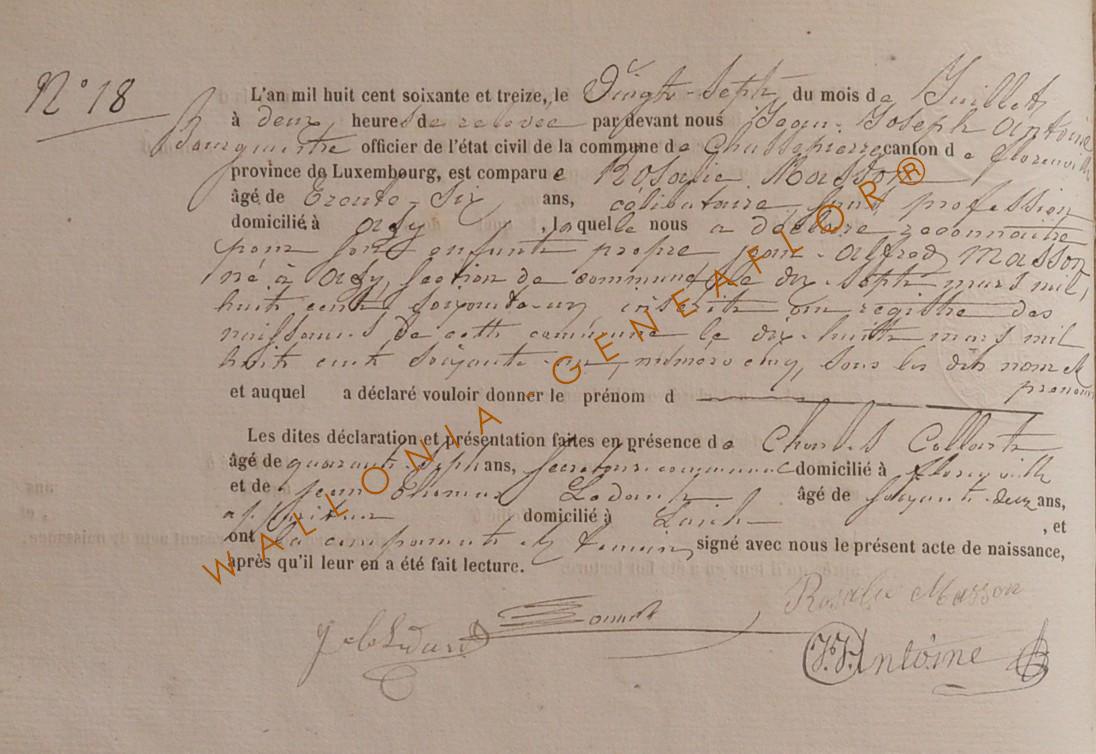 N° 18
L'an mil huit cent soixante et treize, le Vingt-Sept du mois de Juillet,
à deux heures de relevée par devant nous Jean-Joseph Antoine
Bourguinte officier de l'état civil de la commune de Chassepierre canton de Florenville
province de Luxembourg, est comparue Rosalie Masson,
âgé de trente-six ans, célibataire sans profession
domicilié à Azy, laquelle nous a déclaré reconnaitre
pour son enfant propre, Jean-Alfred Masson
né à Azy, section de commune, le dix-sept mars mil,
huit cent soixante-un inscrit au registre des
naissances de cette commune le dix-huit mars mil
huit cent soixante-un, numero cinq, sous les dits nom et
prenom
et auquel a déclaré vouloir donner le prénom d
Les dites déclaration et présentation faites en présence de Charles
âgé de quarante-sept ans, secretaire communal domicilié à Florenville
et de Jean Thomas âgé de soixante-deux ans,
domicilié à Laiche, et
ont la comparante et temoins signé avec nous le présent acte de naissance,
après qu'il leur en a été fait lecture.
Rosalie Masson
J.J. Antoine
WALLONIA - GENEAFLOR®